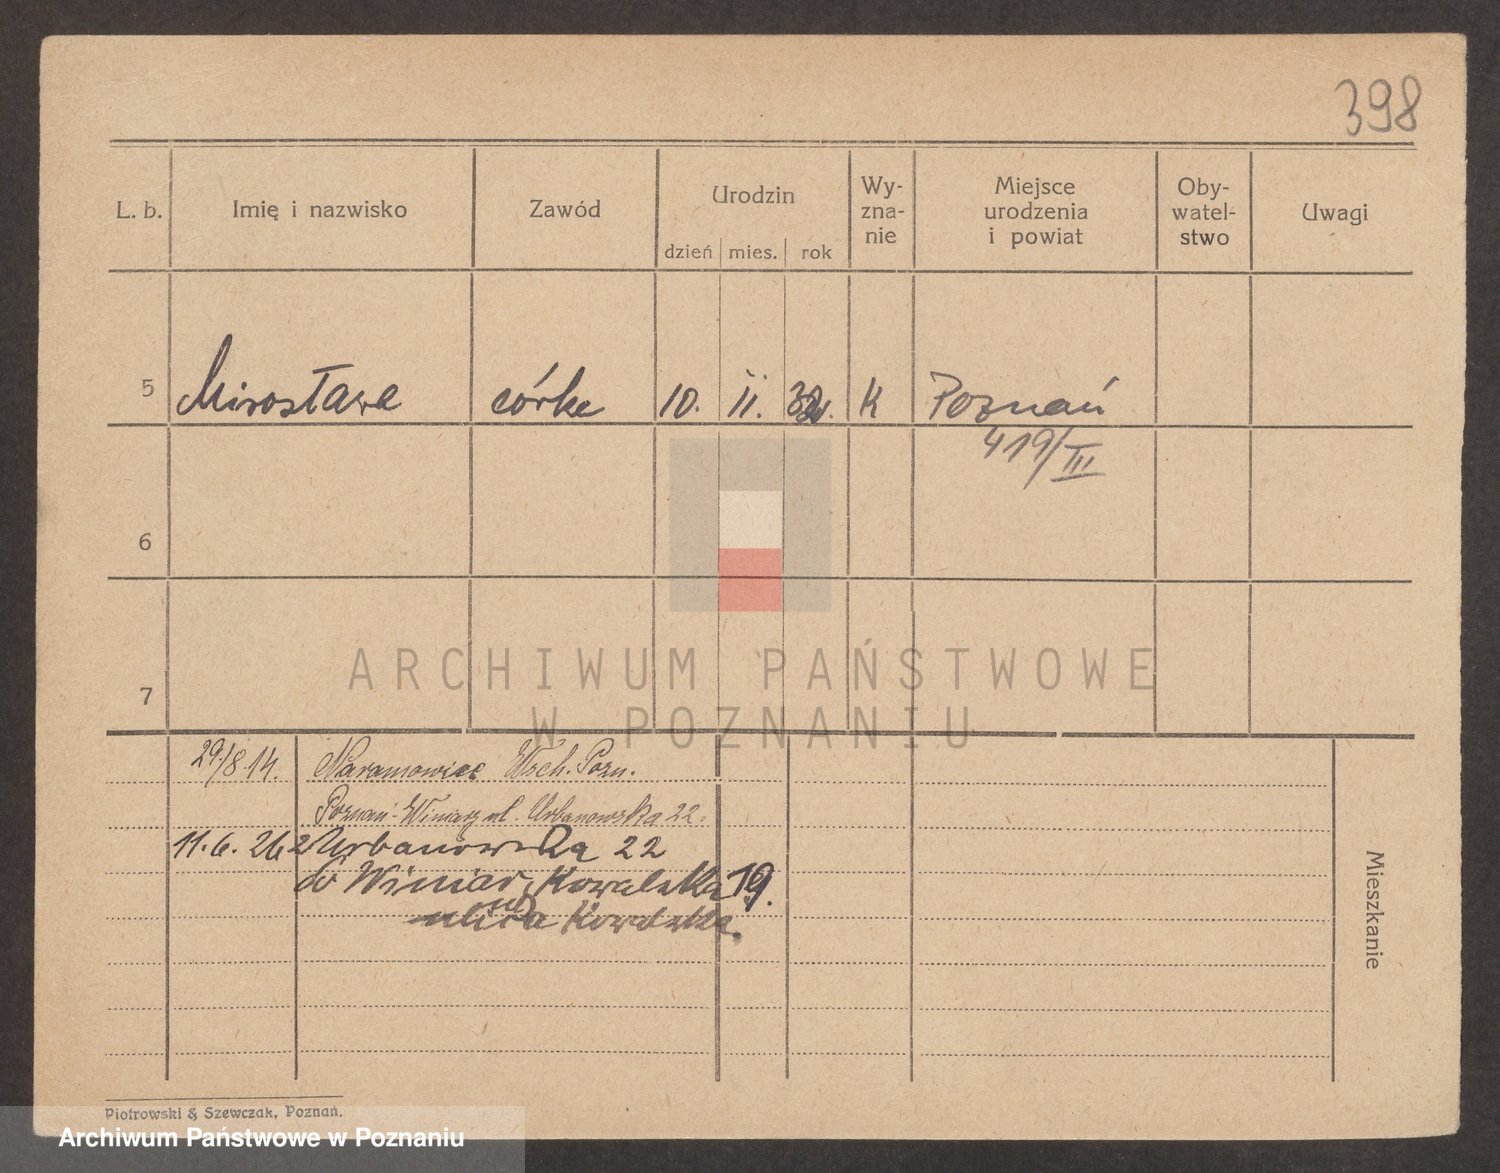 398
L. b. Imię i nazwisko Zawód Urodzin dzień mies. rok Wy-zna-nie Miejsce urodzenia i powiat Oby-watel-stwo Uwagi
5 Mirosława córka 10. II. 32 K Poznań
419/III
6
7
ARCHIWUM PAŃSTWOWE
W POZNANIU
29/8 14. Naramowice Wsch. Pozn.
Poznań-Winiary ul. Urbanowska 22.
11.6. 26 Urbanowska 22
do Winiar, Kowalska 19.
ulica Kowalska.
Mieszkanie
Piotrowski & Szewczak, Poznań.
Archiwum Państwowe w Poznaniu